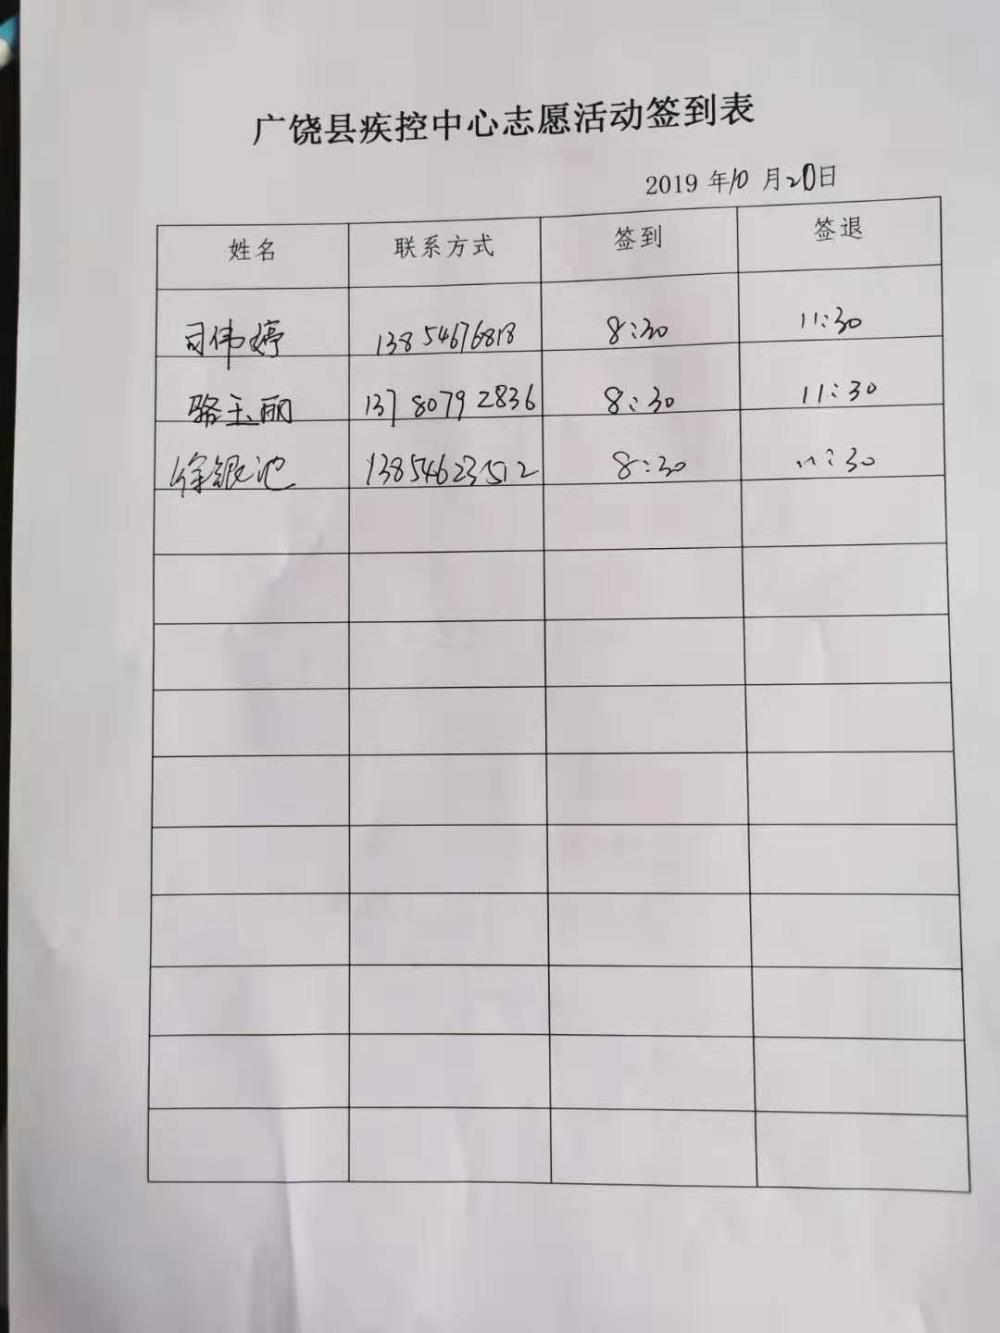 广饶县疾控中心志愿活动签到表
2019 年10 月20日
姓名 联系方式 签到 签退
司伟婷 13854676818 8:30 11:30
骆玉丽 13780792836 8:30 11:30
徐银池 13854623512 8:30 11:30